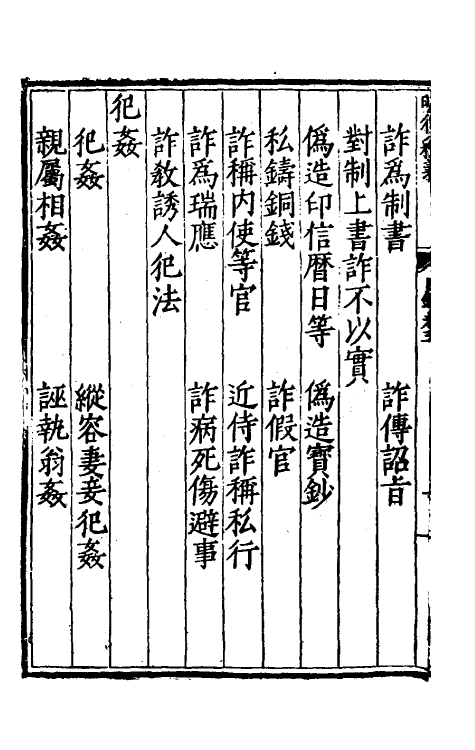 詐爲制書 詐傳詔旨
對制上書詐不以實
僞造印信曆日等 僞造寳鈔
私鑄銅錢 詐假官
詐稱内使等官 近侍詐稱私行
詐爲瑞應 詐病死傷避事
詐教誘人犯法
犯姦
犯姦 縱容妻妾犯姦
親屬相姦 誣執翁姦